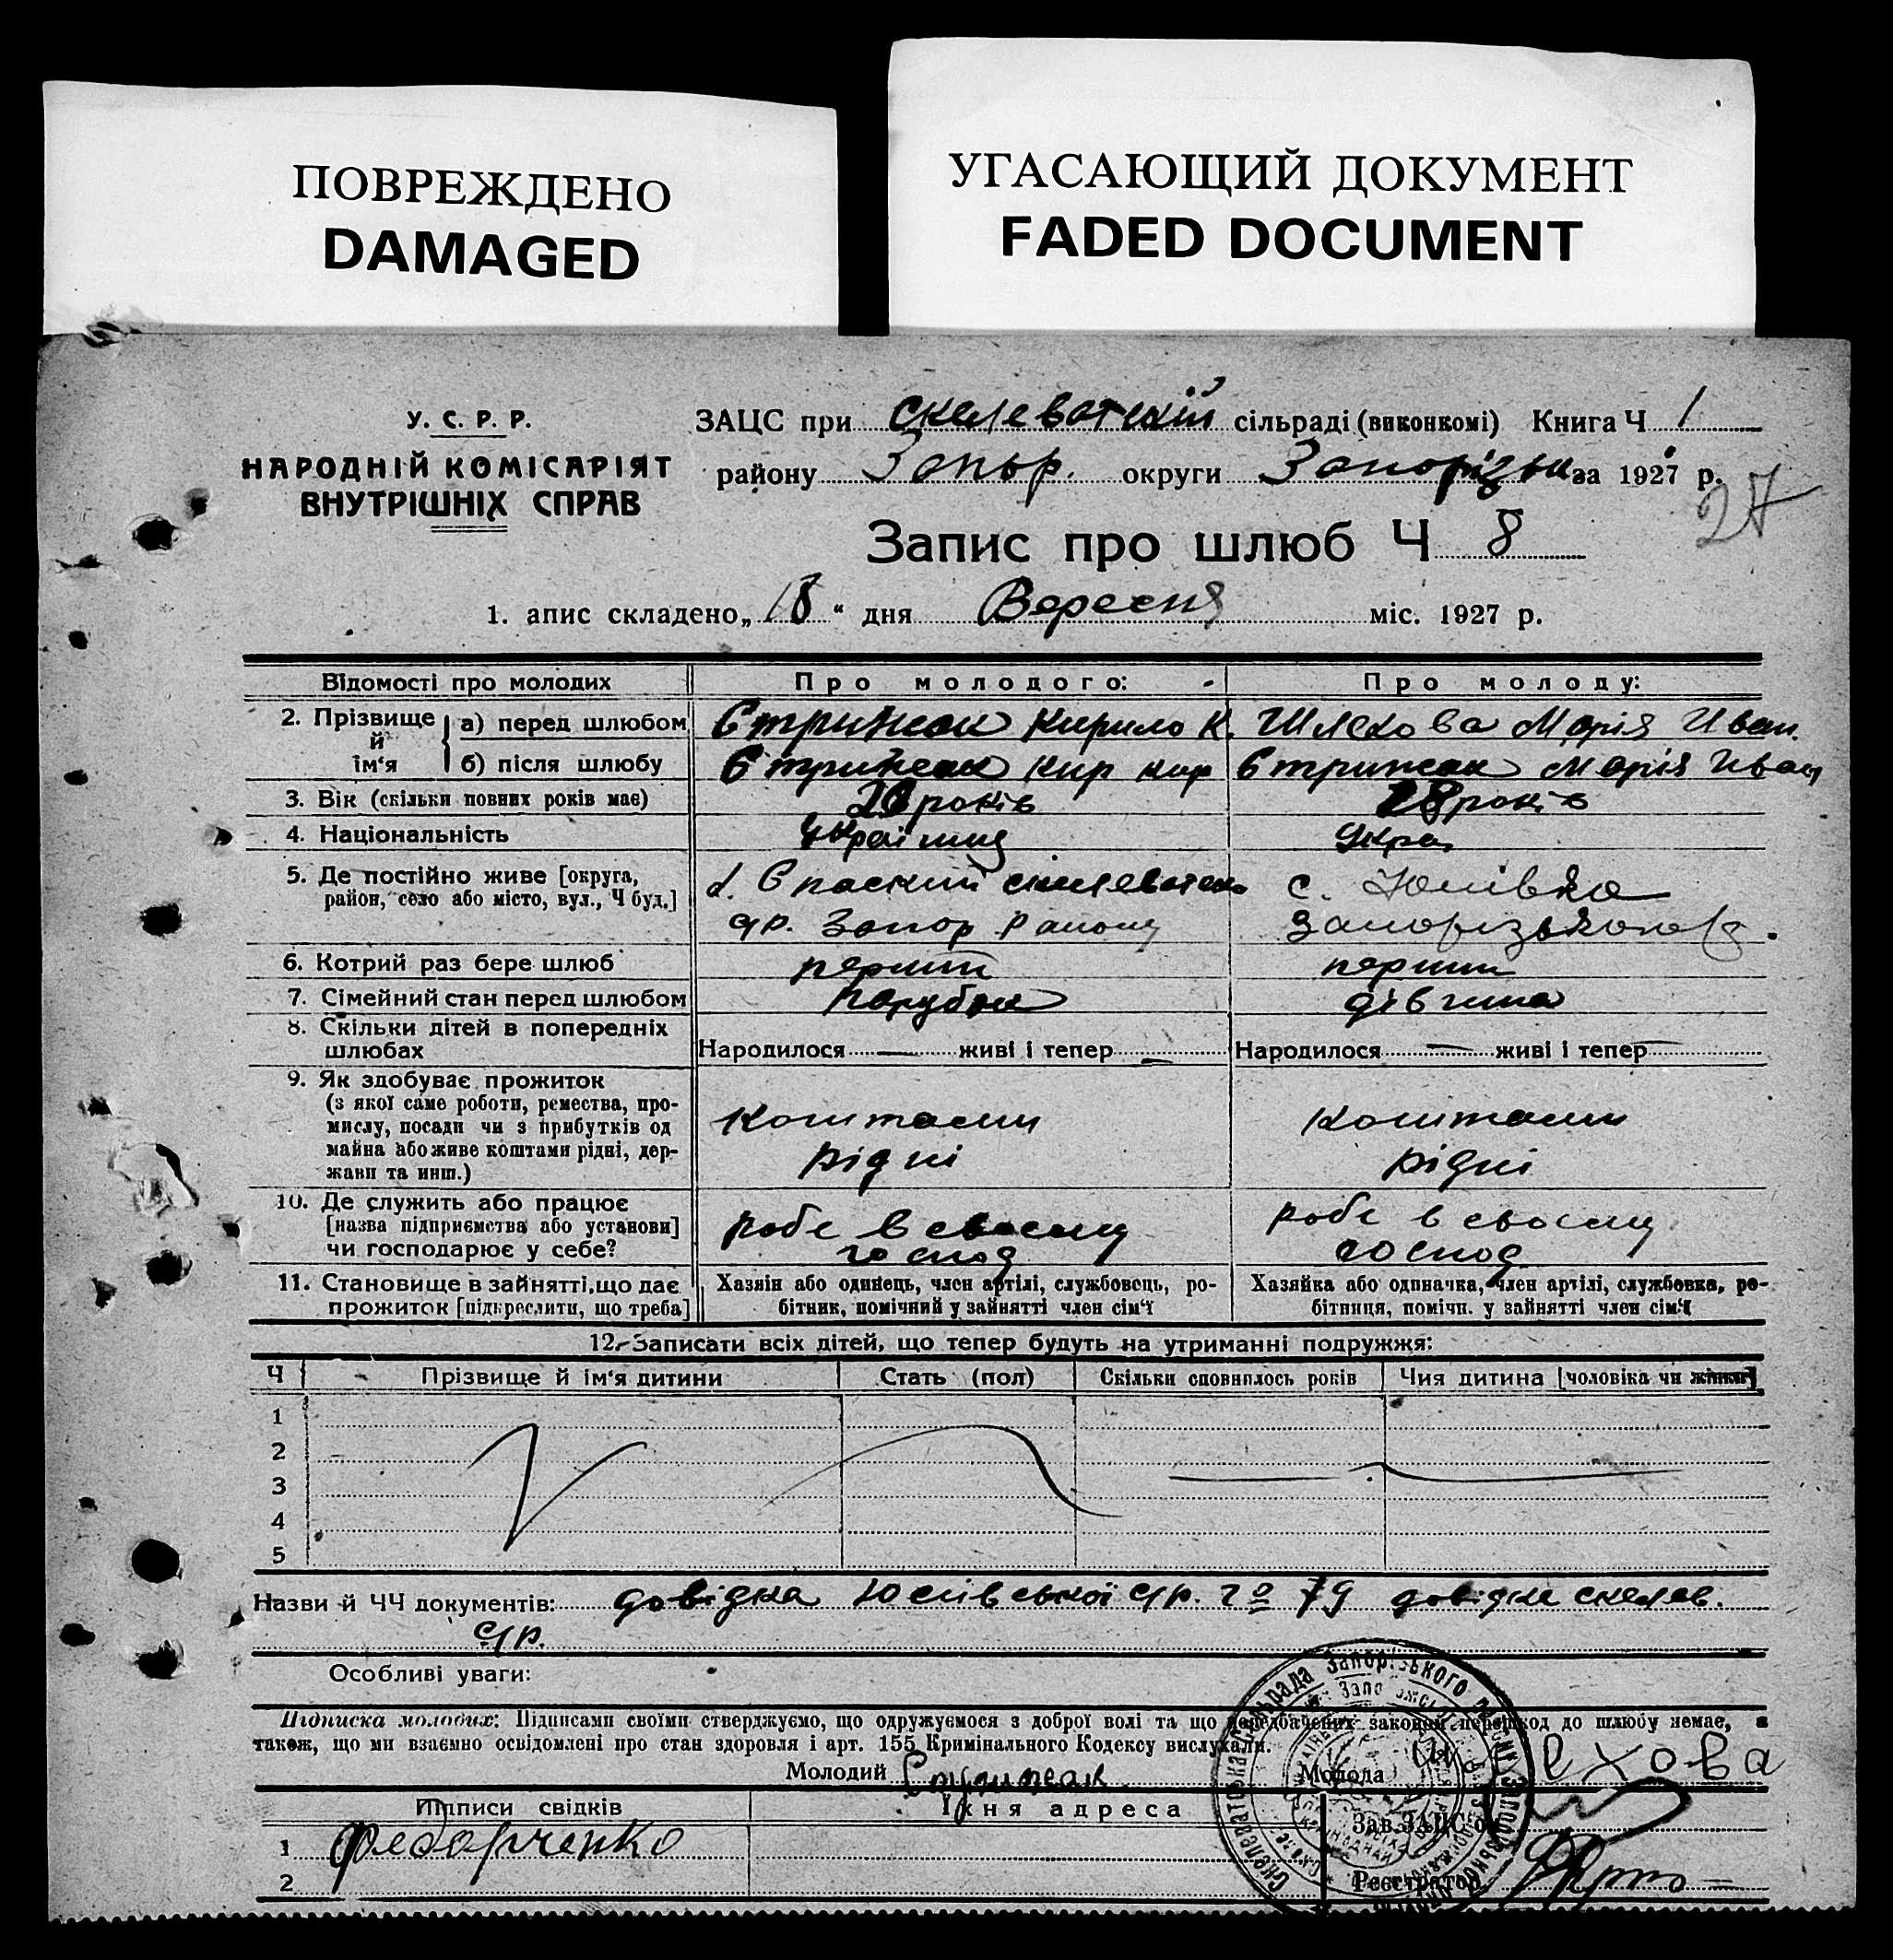 ПОВРЕЖДЕНО
DAMAGED
УГАСАЮЩИЙ ДОКУМЕНТ
FADED DOCUMENT
У. С. Р. Р.
НАРОДНІЙ КОМІСАРІЯТ
ВНУТРІШНІХ СПРАВ
ЗАЦС при Скелеватській сільраді (виконкомі) Книга Ч 1
району Запор. округи Запорізьк за 1927 р.
27
Запис про шлюб Ч 8
1. апис складено „18“ дня Вересня міс. 1927 р.
Відомості про молодих Про молодого: Про молоду:
2. Прізвище й ім‘я а) перед шлюбом Стрижак Кирило К. Шлехова Марія Иван.
б) після шлюбу Стрижак Кир Кир Стрижак Марія Иван
3. Вік (скільки повних років має) років 18 років
4. Національність Українец Укра
5. Де постійно живе [округа, район, село або місто, вул., Ч буд.] Спаский Скелеватсь с. Юлівка
с/р. Запор Району Запорізького р.
6. Котрий раз бере шлюб перший перший
7. Сімейний стан перед шлюбом парубок дівчина
8. Скільки дітей в попередніх шлюбах Народилося — живі і тепер — Народилося — живі і тепер —
9. Як здобуває прожиток
(з якої саме роботи, ремества, про-
мислу, посади чи з прибутків од
майна або живе коштами рідні, дер-
жави та инш.)
коштами рідні коштами рідні
10. Де служить або працює
[назва підприємства або установи]
чи господарює у себе?
робе в своему господ робе в своему господ
11. Становище в зайнятті, що дає
прожиток [підкреслити, що треба]
Хазяїн або одинець, член артілі, службовець, ро-
бітник, помічний у зайнятті член сім‘ї
Хазяйка або одиначка, член артілі, службовка, ро-
бітниця, помічн. у зайнятті член сім‘ї
12. Записати всіх дітей, що тепер будуть на утриманні подружжя:
Ч Прізвище й ім‘я дитини Стать (пол) Скільки сповнилось років Чия дитина [чоловіка чи жінки]
1
2
3
4
5
Назви й ЧЧ документів: довідка Юлівської с/р. довідка скелев.
с/р.
Особливі уваги:
Підписка молодих: Підписами своїми стверджуємо, що одружуємося з доброї волі та що передбачених законом перешкод до шлюбу немає, а
також, що ми взаємно освідомлені про стан здоровля і арт. 155 Кримінального Кодексу вислухали.
Молодий Стрижак Молода Шлехова
Підписи свідків Їхня адреса Зав. ЗАЦС‘ом
1 Федорченко
2 Реєстратор